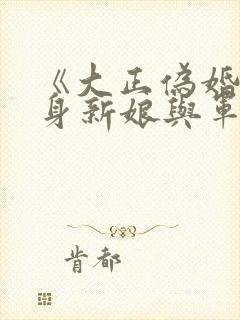 《大正偽婚
身新娘與軍
肯都